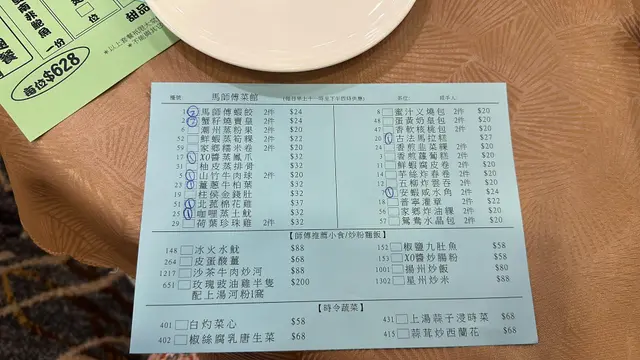 一份
位
甜品
每位$628
檯號 馬師傅菜館
1 2 馬師傅蝦餃 2件 $24
2 2 蟹籽燒賣皇 2件 $24
6 潮州蒸粉果 2件 $20
52 鮮蝦蒸荀粿 2件 $22
59 家鄉糯米卷 2件 $20
17 1 XO醬蒸鳳爪 $32
31 柚皮蒸排骨 $32
5 1 山竹牛肉球 2件 $20
27 1 薑蔥牛柏葉 $32
19 柱侯金錢肚 $32
51 1 北菰棉花雞 $37
25 1 咖喱蒸土魷 $32
29 荷葉珍珠雞 2件 $40
8 蜜汁义燒包 2件 $20
48 蛋黃奶皇包 2件 $20
47 香軟核桃包 2件 $20
20 1 古法馬拉糕 $27
24 香煎韭菜粿 2件 $20
3 香煎蘿蔔糕 2件 $20
11 鮮蝦腐皮卷 2件 $20
14 芋絲炸春卷 2件 $20
12 五柳炸雲吞 2件 $20
7 1 安蝦咸水角 2件 $24
18 普寧灌章 2件 $22
56 家鄉炸油粿 2件 $20
57 鴛鴦水晶包 2件 $20
【師傅推薦小食/炒粉麵飯】
148 冰火水魷 $88
264 皮蛋酸薑 $68
1217 沙茶牛肉炒河 $88
651 玫瑰豉油雞半隻 $200
配上湯河粉1窩
152 椒鹽九肚魚 $58
153 XO醬炒腸粉 $58
1001 揚州炒飯 $80
1302 星州炒米 $88
【時令蔬菜】
401 白灼菜心 $58
402 椒絲腐乳唐生菜 $68
431 上湯蒜子浸時菜 $68
415 蒜茸炒西蘭花 $68